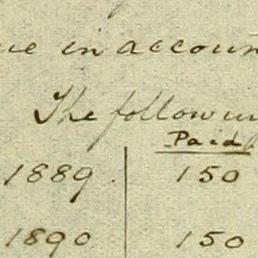 in accoun
The followin
Paid
1889 150
1890 150